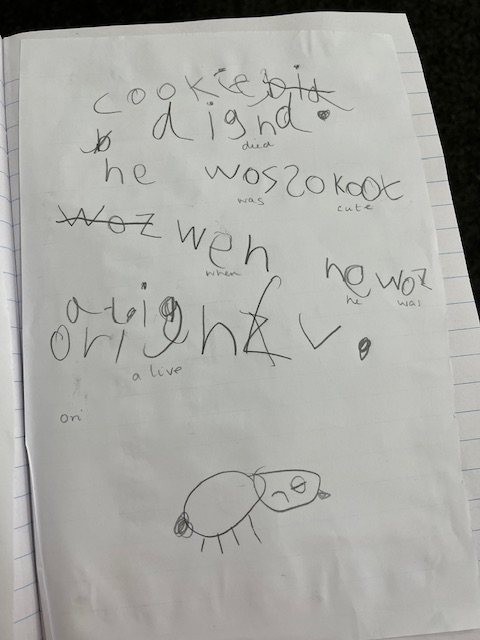 cookie bit
dighd.
died
b
he wos so koot
was cute
woz wen
when
he woz
he was
a lig
orighz v.
a live
ori